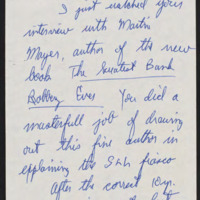 I just watched your
interview with Martin
Mayer, author of the new
book The Greatest Bank
Robbery Ever You did a
masterfull job of drawing
out this fine author in
explaining the S&L fiasco
After the correct